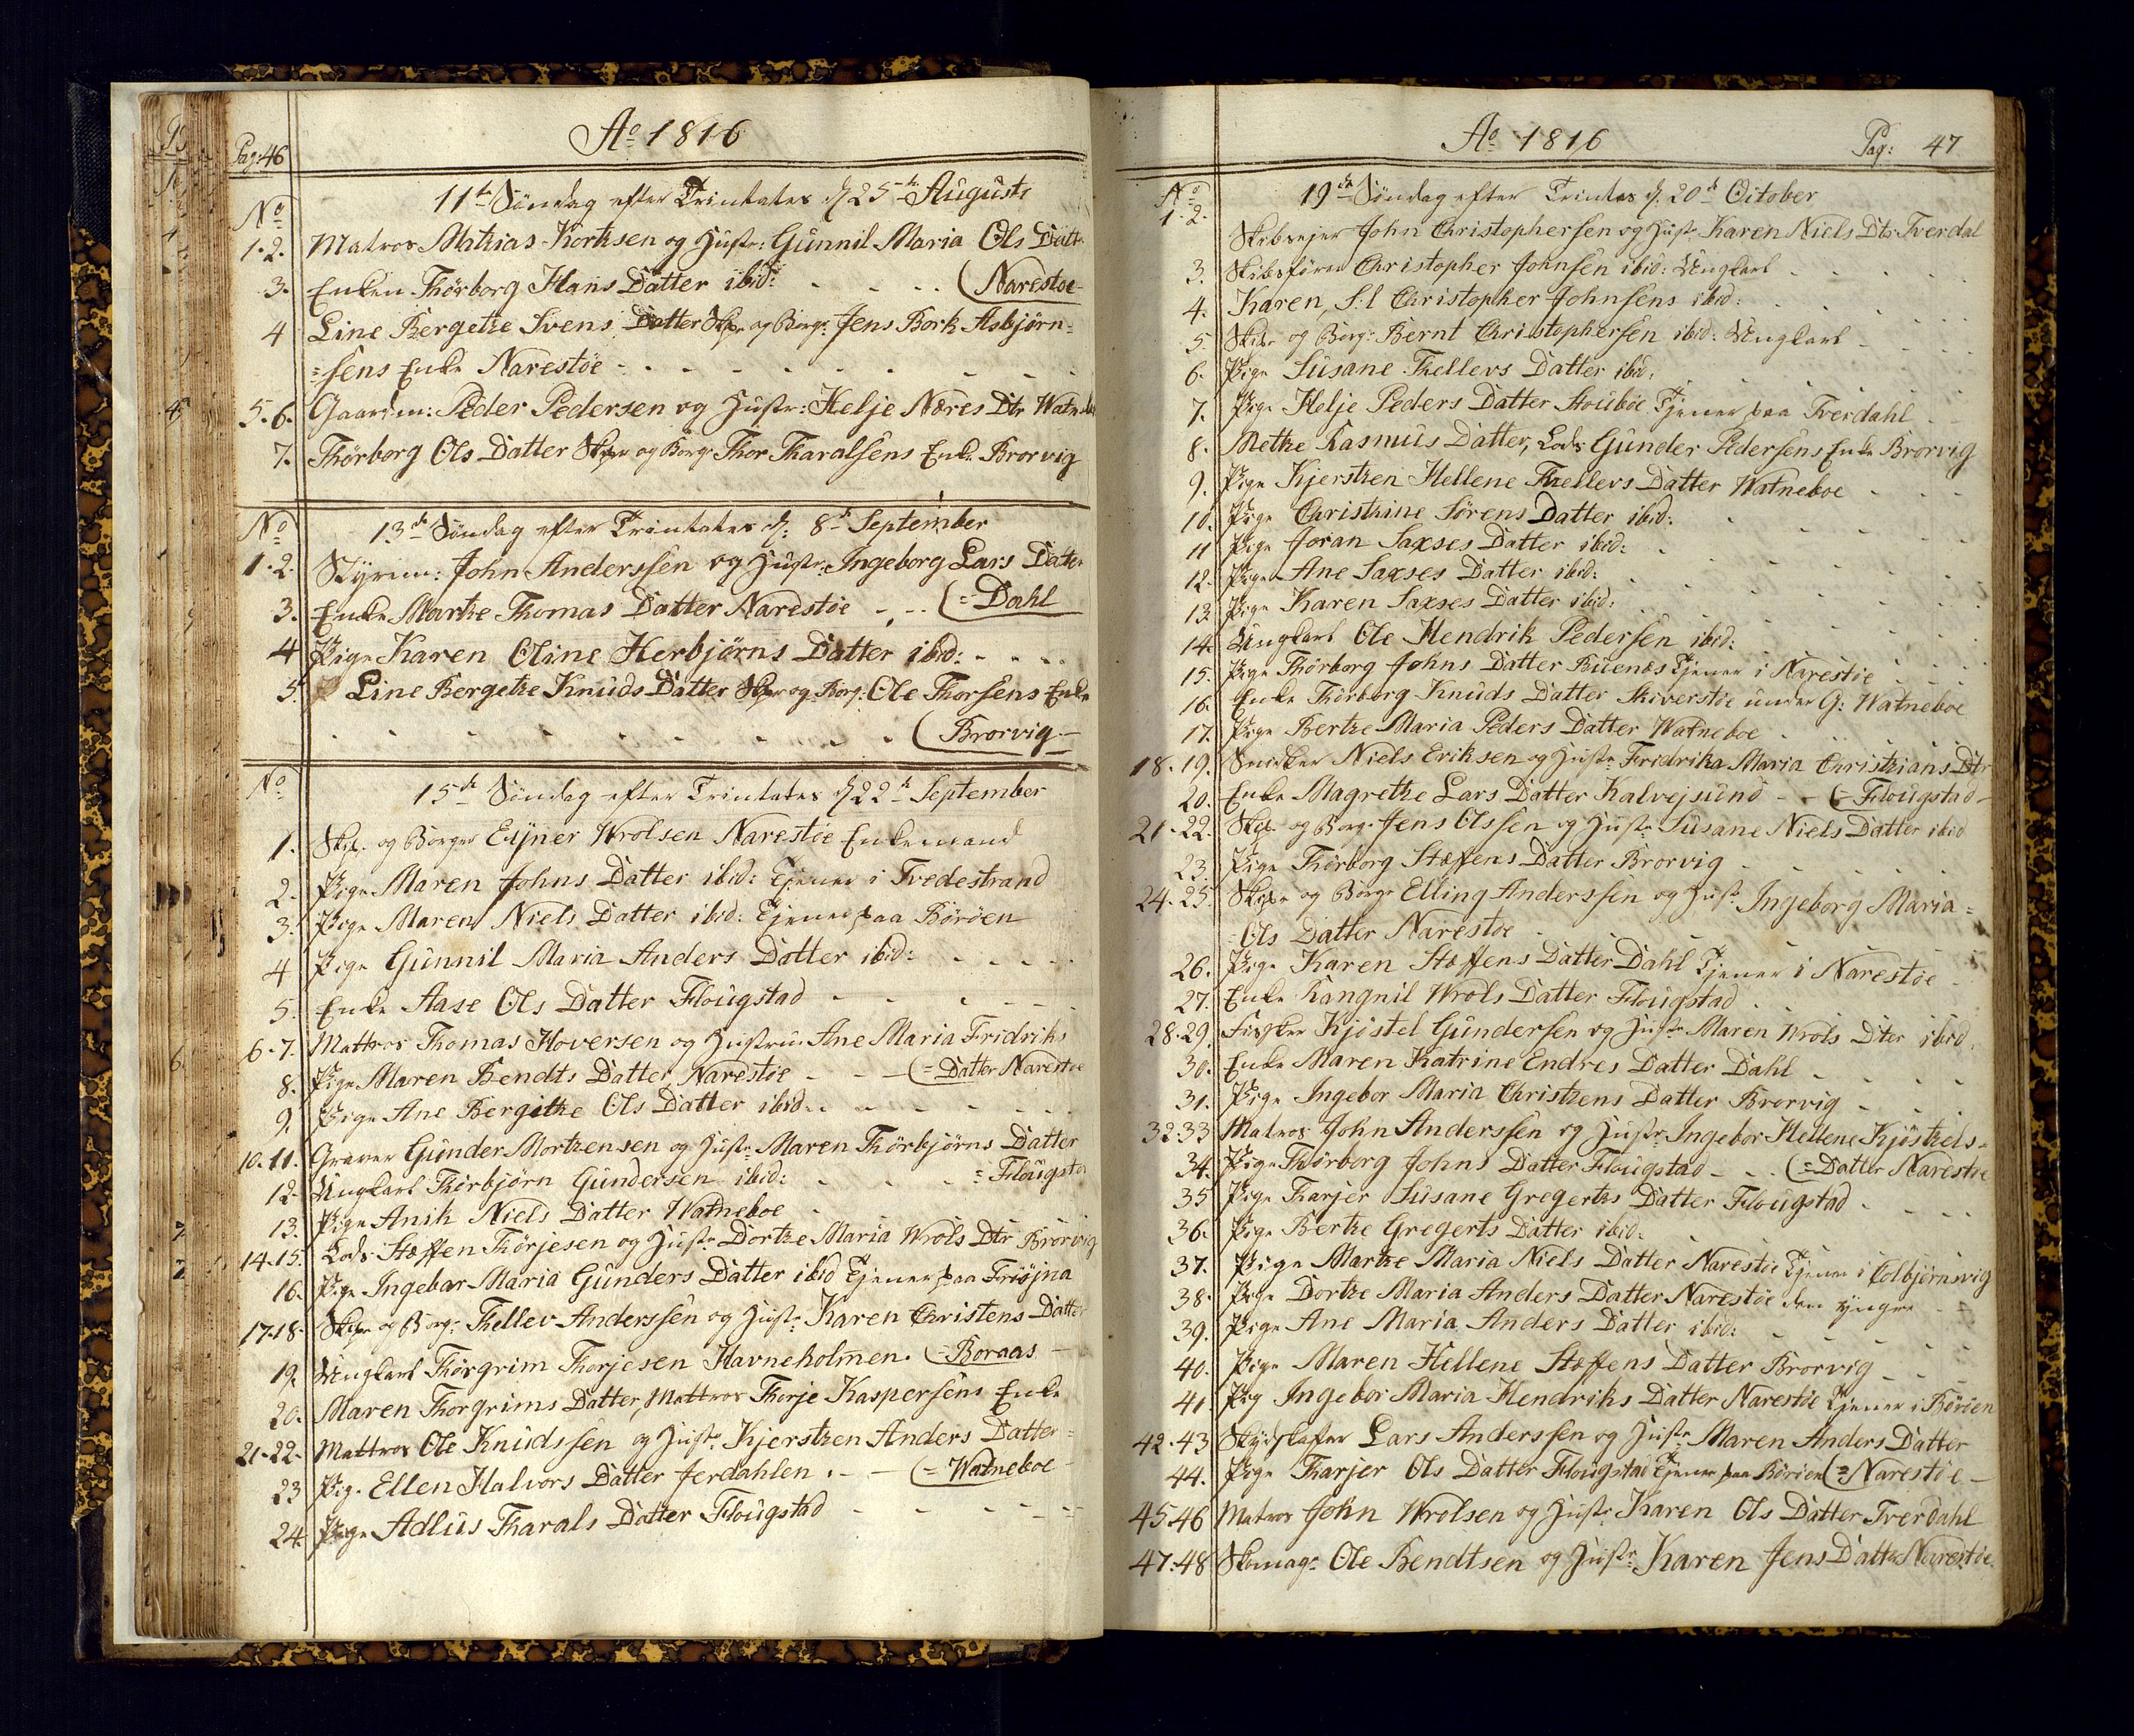 Pag: 46
Ao 1816
No
11te Søndag efter Trinitates d. 25de Augusti
1. 2. Matros Mathias Korthsen og Hustr: Gunnil Maria Ols Datt
3. Enken Thörborg Hans Datter ibid: (Narestöe
4 Line Bergethe Svens Datter Skipr og Borgr Jens Bork Asbjörn=
=sens Enke Narestöe
5. 6. Gaardm: Peder Pedersen og Hustr: Helje Næres Dtr Watneboe
7. Thörborg Ols Datter Skipr og Borgr Thor Tharalsens Enke Brorvig
No
13de Søndag efter Trinitates d: 8de September
1. 2. Styrm: John Anderssen og Hustr: Ingeborg Lars Datter
3. Enke Marthe Thomas Datter Narestöe (=Dahl
4 Pige Karen Oline Herbjörns Datter ibid:
5. Line Bergethe Knuds Datter Skipr og Borg: Ole Thorsens Enke
(Brorvig
No
15de Söndag efter Trinitates d 22de September
1. Skipr og Borger Eijner Wrolsen Narestöe Enkemand
2. Pige Maren Johns Datter ibid: Tjener i Tvedestrand
3. Pige Maren Niels Datter ibid: Tjener paa Böröen
4 Pige Gunnil Maria Anders Datter ibid:
5. Enke Aase Ols Datter Flougstad
6. 7. Mattros Thomas Hoversen og Hustrue Ane Maria Fridriks
8. Pige Maren Bendts Datter Narestöe (=Datter Narestöe
9. Pige Ane Bergithe Ols Datter ibid:
10. 11. Graver Gunder Mortensen og Hustr: Maren Thörbjörns Datter
12. Ungkarl Thörbjörn Gundersen ibid: =Flougsta
13. Pige Anik Niels Datter Watneboe
14. 15. Lods Stæffen Thörjesen og Hustr Dorthe Maria Wrols Dtr Brorvig
16. Pige Ingebor Maria Gunders Datter ibid Tjener paa Friöjna
17. 18. Skipr og Borg: Thellev Anderssen og Hustr Karen Christens Datter
19. Ungkarl Thörgrim Thorjesen Havneholmen (=Boraas
20. Maren Thorgrims Datter, Mattros Thorje Kaspersens Enke
21. 22. Mattros Ole Knudssen og Hustr Kjersthen Anders Datter=
23 Pig. Ellen Halvors Datter Jerdahlen (=Watneboe
24. Pige Adlus Tharals Datter Flougstad
Ao 1816
Pag: 47
No
19de Søndag efter Trinitas d. 20de October
1. 2. Skibsejer John Christophersen og Hustr Karen Niels Dtr Tverdal
3. Skibsförer Christopher Johnsen ibid: Ungkarl
4. Karen, S:l Christopher Johnsens ibid:
5. Skipr og Borgr Bernt Christophersen ibid: Ungkarl
6. Pige Susane Thellevs Datter ibid:
7. Pige Helje Peders Datter Stouböe Tjener paa Tverdahl
8. Methe Rasmus Datter, Lods Gunder Pedersens Enke Brorvig
9. Pige Kjersthen Hellene Thellevs Datter Watneboe
10. Pige Christhine Sörens Datter ibid:
11 Pige Joran Saxses Datter ibid:
12. Pige Ane Saxses Datter ibid:
13. Pige Karen Saxses Datter ibid:
14. Ungkarl Ole Hendrik Pedersen ibid:
15. Pige Thörborg Johns Datter Buenæs Tjener i Narestöe
16. Enke Thörborg Knuds Datter Skiverstöe under G: Watneboe
17. Pige Berthe Maria Peders Datter Watneboe
18. 19. Snedker Niels Eriksen og Hustr Fridrika Maria Christians Dtr
20. Enke Magrethe Lars Datter Kalvejsund (=Flougstad
21. 22. Skipr og Borgr Jens Olssen og Hustr Susane Niels Datter ibid
23. Pige Thörborg Stæffens Datter Brorvig
24. 25. Skipr og Borgr Elling Anderssen og Hustr Ingeborg Maria=
=Ols Datter Narestöe
26. Pige Karen Stæffens Datter Dahl Tjener i Narestöe
27. Enke Rangnil Wrols Datter Flougstad
28. 29. Fisker Kjöstel Gundersen og Hustr Maren Wrols Dter ibid.
30. Enke Maren Katrine Endres Datter Dahl
31. Pige Ingebor Maria Christhens Datter Brorvig
32. 33 Matros John Anderssen og Hustr Ingebor Hellene Kjösthels=
34. Pige Thörborg Johns Datter Flougstad (=Datter Narestöe
35 Pige Tharjer Susane Gregerths Datter Flougstad
36. Pige Berthe Gregerts Datter ibid:
37. Pige Marthe Maria Niels Datter Narestöe Tjener i Colbjörnsvig
38. Pige Dorthe Maria Anders Datter Narestöe den yngre
39. Pige Ane Maria Anders Datter ibid:
40. Pige Maren Hellene Stæffens Datter Brorvig
41 Pig Ingebor Maria Hendriks Datter Narestöe Tjener i Böröen
42. 43 Skydskaffer Lars Anderssen og Hustr Maren Anders Datter
44. Pige Tharjer Ols Datter Flougstad Tjener paa Böröen (=Narestöe
45. 46 Matros John Wrolsen og Hustr Karen Ols Datter Tverdahl
47. 48 Skomagr Ole Bendtsen og Hustr: Karen Jens Datter Narestöe